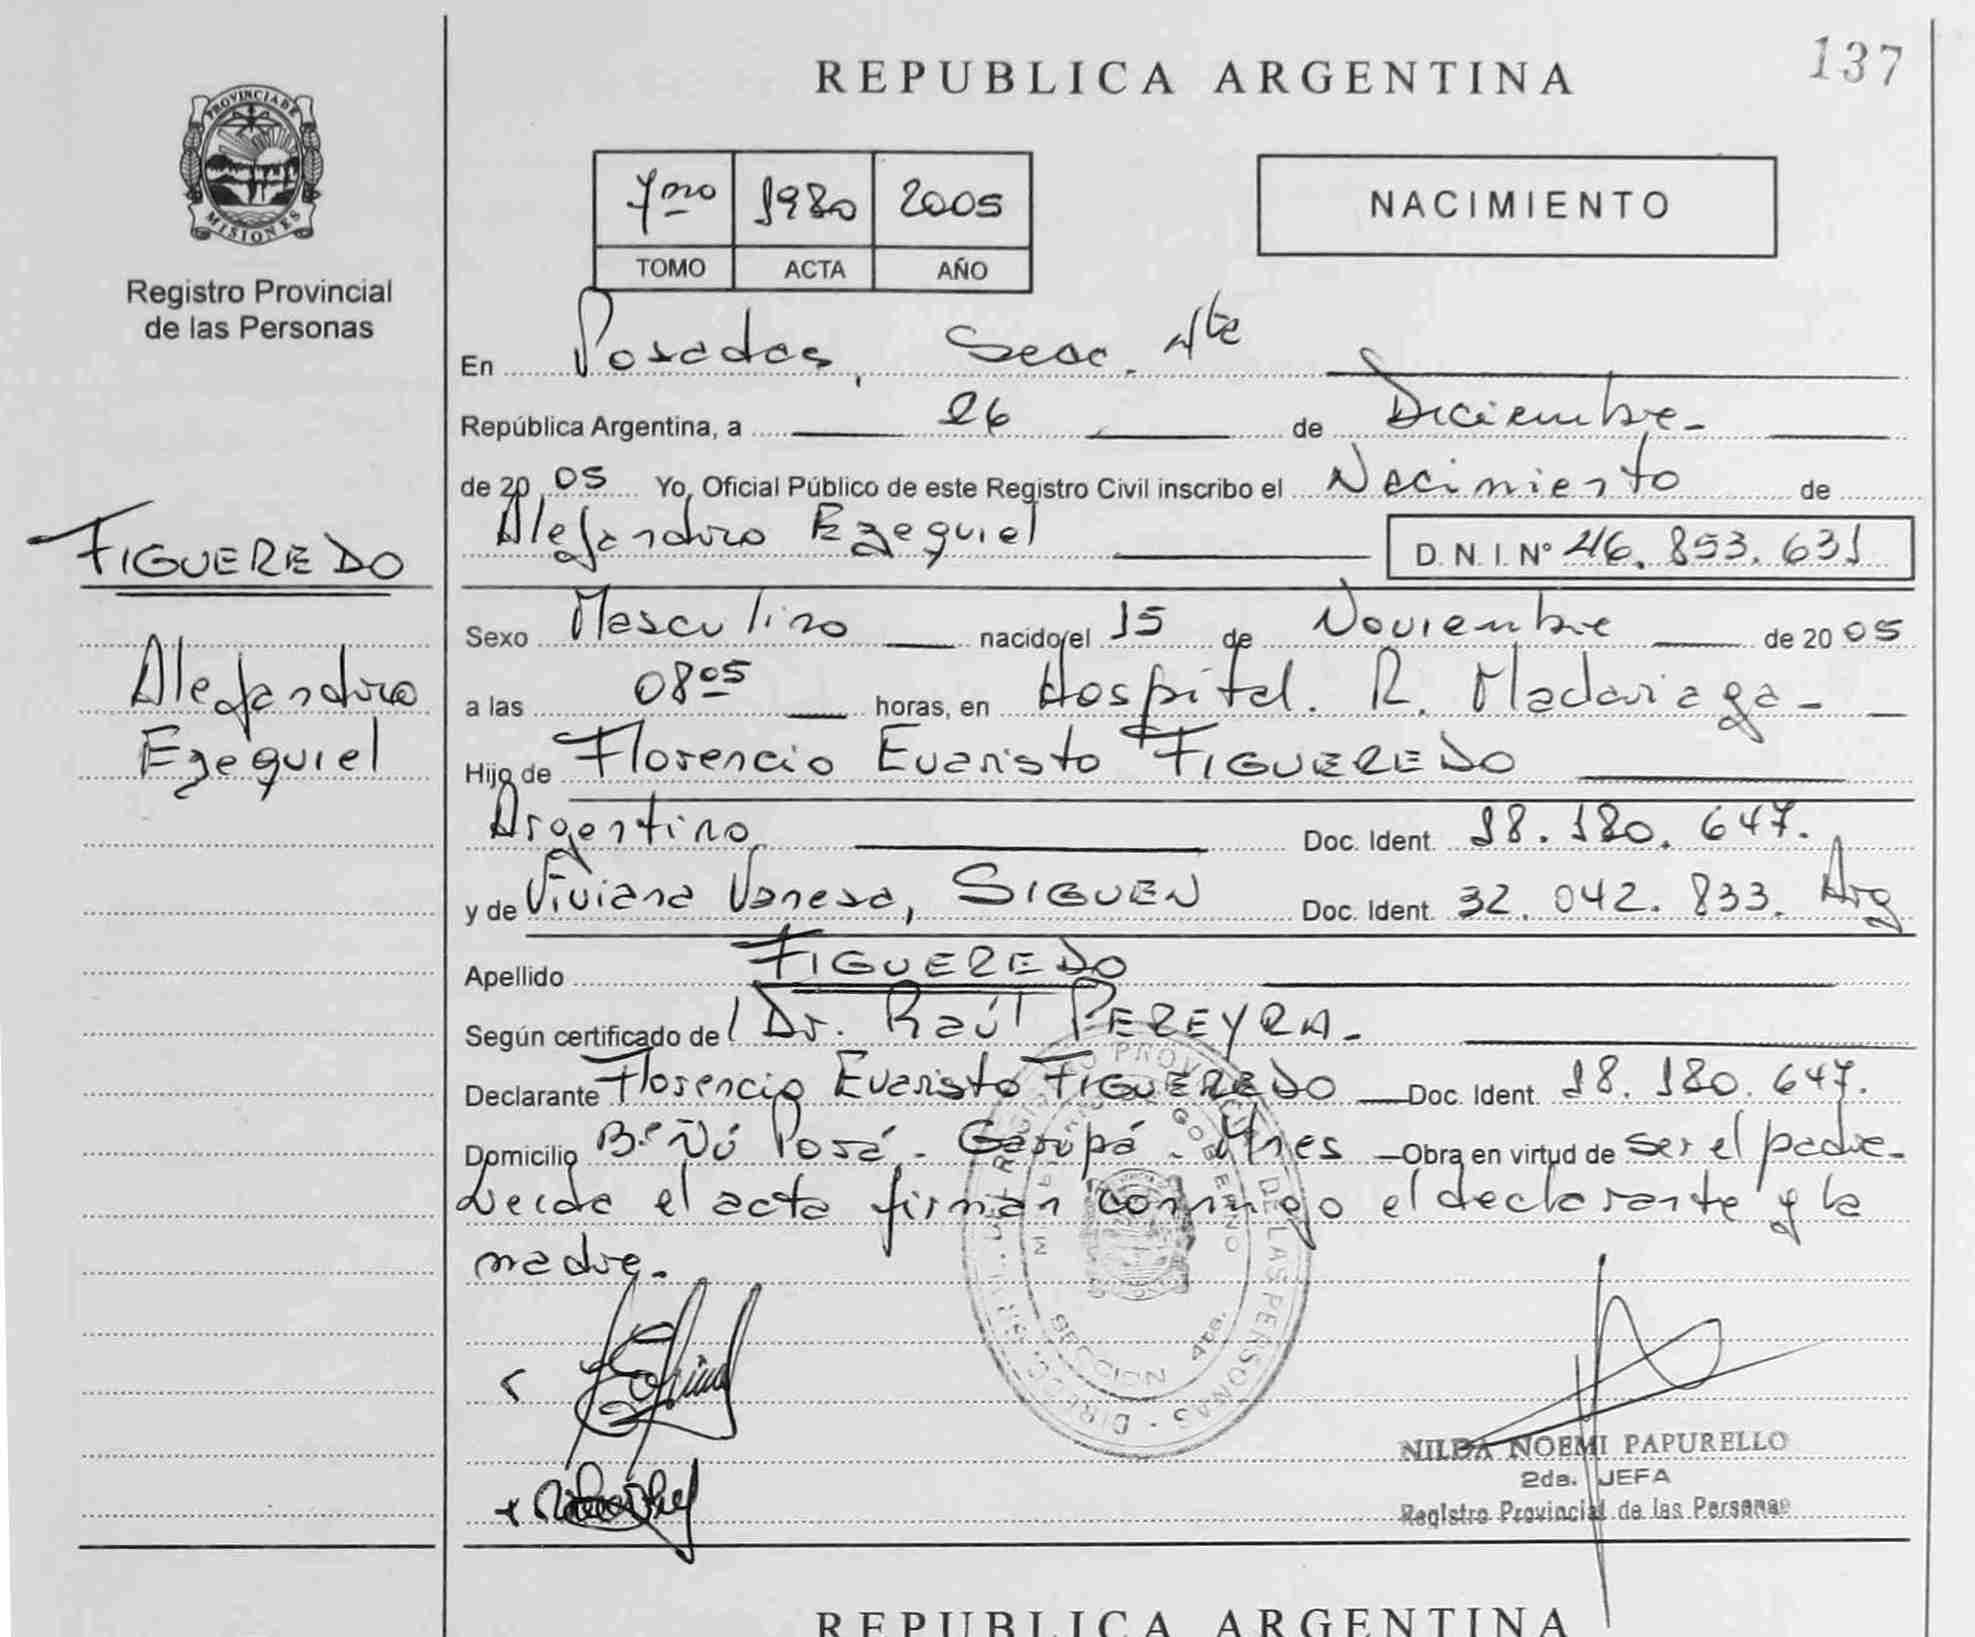 REPUBLICA ARGENTINA
137
PROVINCIA DE
MISIONES
Registro Provincial
de las Personas
7mo 1980 2005
TOMO ACTA AÑO
NACIMIENTO
En Posadas, Secc. 4ta
República Argentina, a 26 de Diciembre
de 2005 Yo, Oficial Público de este Registro Civil inscribo el Nacimiento de
Alejandro Ezequiel D.N.I. N° 46.853.631
FIGUEREDO
Alejandro
Ezequiel
Sexo Masculino nacido el 15 de Noviembre de 2005
a las 08 05 horas, en Hospital. R. Madariaga
Hijo de Florencio Evaristo FIGUEREDO
Argentino Doc. Ident. 18.180.647.
y de Viviana Vanesa, SIGUEN Doc. Ident. 32.042.833. Arg
Apellido FIGUEREDO
Según certificado del Dr. Raúl PEREYRA
Declarante Florencio Evaristo FIGUEREDO Doc. Ident. 18.180.647.
Domicilio B° Ñú Porá - Garupá - Mnes Obra en virtud de ser el padre.
Leida el acta firman conmigo el declarante y la
madre.
SECCION 4ta.
NILDA NOEMI PAPURELLO
2da. JEFA
Registro Provincial de las Personas
REPUBLICA ARGENTINA